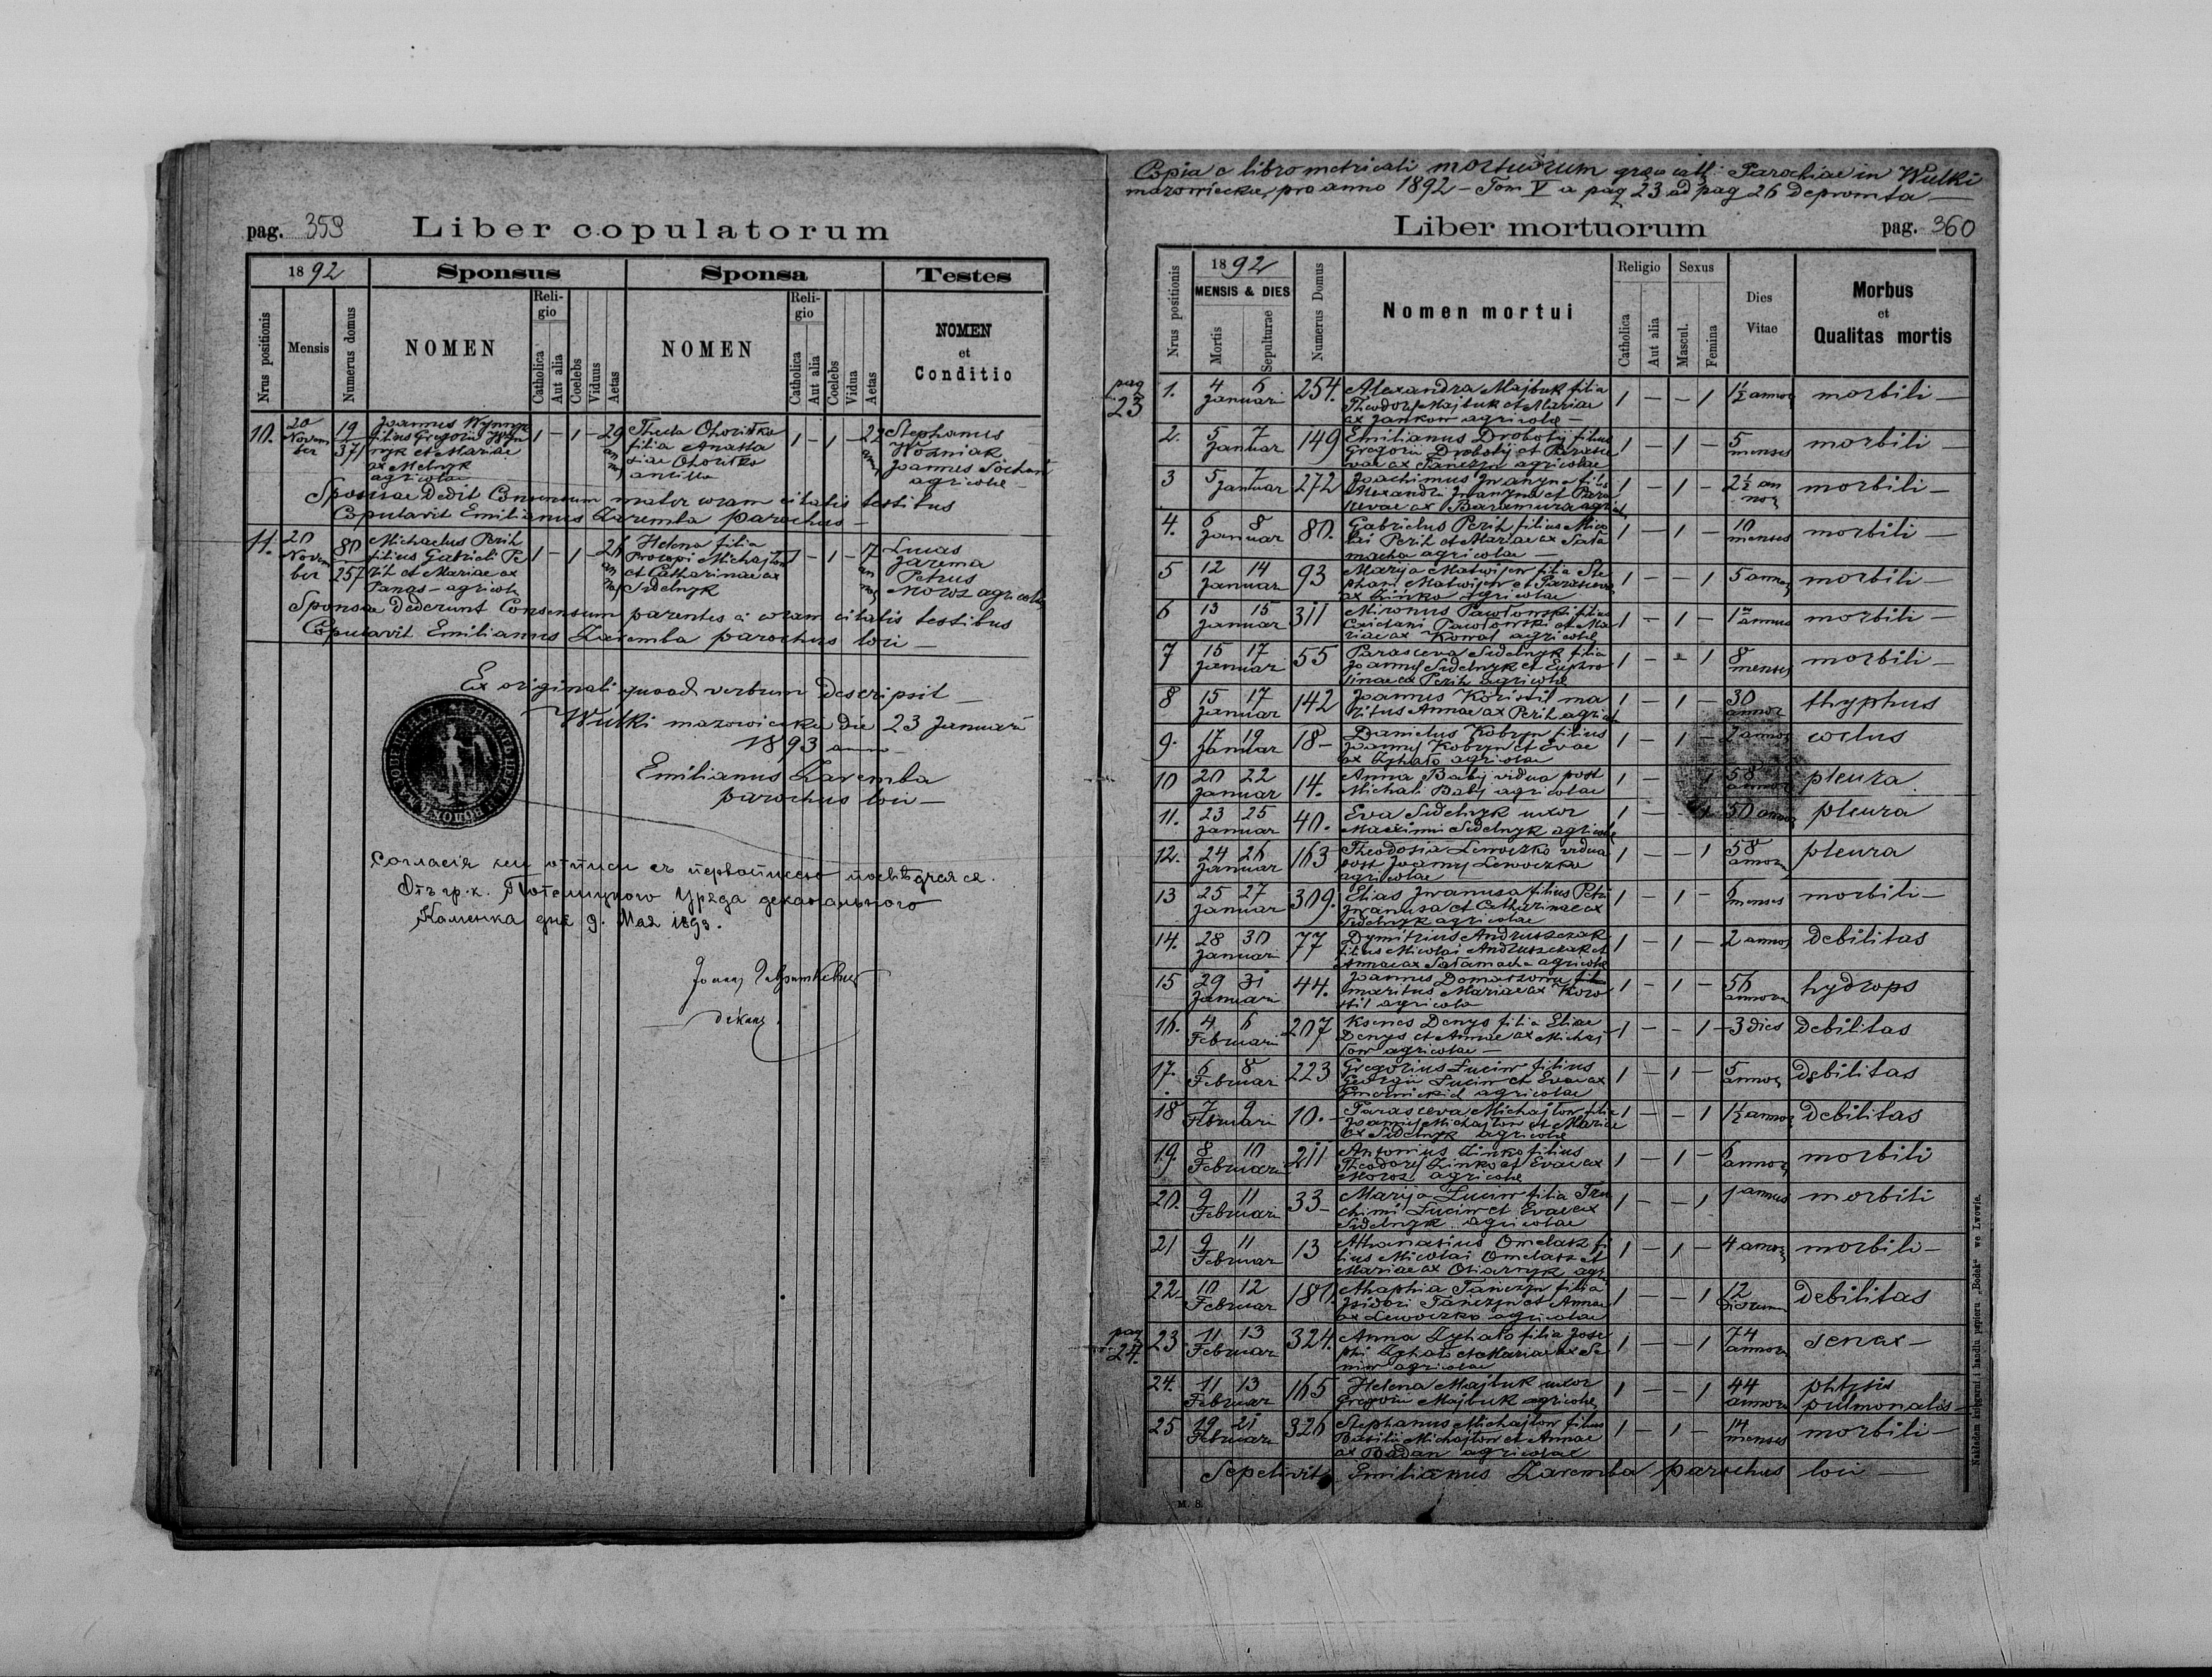 pag. 359 Liber copulatorum
18 92 Sponsus Sponsa Testes
Nrus positionis Mensis Numerus domus NOMEN Religio Catholica Aut alia Coelebs Viduus Aetas NOMEN Religio Catholica Aut alia Coelebs Vidua Aetas NOMEN et Conditio
10. 20 Novem ber 19 37
Joannes
filius Gregorii
nyk et Mariae
ex Melnyk
agricolae
1 – 1 – 29
Thecla
filia Anasta
siae
ancilla
1 – 1 – 22
Stephanus
Woźniak
Joannes
agricolae –
Sponsae dedit Consensum mater coram citatis testibus
Copulavit Emilianus Zaremba parochus –
11. 20 Novem ber 80 257
Michaelus Perih
filius Gabrieli Pe
rih et Mariae ex
Panas – agricola
1 – 1 – 26
Helena filia
Procopi Michajłow
et Catharinae ex
Sidelnyk
1 – 1 – 17
Lucas
Jarema
Petrus
Moroz agricolae
Sponsae dederunt Consensum parentes coram citatis testibus
Copulavit Emilianus Zaremba parochus loci –
Ex originali quoad verbum descripsit –
Wulki mazowiecka die 23 Januarii
1893 anno
Emilianus Zaremba
parochus loci –
дня 9. Мая 1893.
Copia e libro metricali mortuorum graeco cath: Parochiae in Wulki
mazowiecka, pro anno 1892 – Tom V a pag 23 ad pag 26 depromta –
Liber mortuorum pag. 360
Nrus positionis 18 92 MENSIS & DIES Mortis Sepulturae Numerus Domus Nomen mortui Religio Catholica Aut alia Sexus Mascul. Femina Dies Vitae Morbus et Qualitas mortis
pag 23
1. 4 6 Januari 254.
Alexandra Majbuk filia
Theodori Majbuk et Mariae
ex Jankow agricolae –
1 – – 1 1½ annor morbili –
2. 5 7 Januar 149
Emilianus Drobotij filius
Gregorii Drobotij et Parasce
vae ex Tanczyn agricolae
1 – 1 – 5 menses morbili –
3 5 7 Januar 272
Joachimus Iwanyna filius
Alexandri Iwanyna et Para
scevae ex Baramura agricol
1 – 1 – 2½ an nor morbili –
4. 6 8 Januar 80.
Gabrielus Perih filius Nico
lai Perih et Mariae ex Sała
macha agricolae –
1 – 1 – 10 menses morbili –
5 12 14 Januar 93
Marija Matwijow filia Ste
phani Matwijow et Parascevae
ex Zinko agricolae
1 – – 1 5 annor morbili –
6 13 15 Januar 311
Mironus Pawłowski filius
Caietani Pawłowski et Ma
riae ex Kowal agricolae
1 – 1 – 1 annus morbili –
7 15 17 Januar 55
Parasceva Sidelnyk filia
Joannis Sidelnyk et Euphro
sinae ex Perih agricolae
1 – – 1 8 menses morbili –
8 15 17 Januar 142
Joannes Koristil ma
ritus Annae ex Perih agricol
1 – 1 – 30 annor thyphus
9. 17 19 Januar 18 –
Danielus Kobryn filius
Joannis Kobryn et Evae
ex Zyhało agricolae
1 – 1 – 2 annor coctus
10 20 22 Januar 14.
Anna Babij vidua post
Michaeli Babij agricolae
1 – – 1 58 annor pleura
11. 23 25 Januar 40.
Eva Sidelnyk uxor
Maximi Sidelnyk agricolae
1 – – 1 50 annor pleura
12. 24 26 Januar 163
Theodosia Lewoczko vidua
post Joannis Lewoczko
agricolae –
1 – – 1 58 annor pleura
13 25 27 Januar 309.
Elias Iwanusa filius Petri
Iwanusa et Catharinae ex
Sidelnyk agricolae
1 – 1 – 6 menses morbili –
14. 28 30 Januar 77
Dymitrius Andruszczak
filius Nicolai Andruszczak et
Annae ex Sałamacha agricolae
1 – 1 – 2 annor debilitas
15 29 31 Januari 44.
Joannes
maritus Mariae ex Koro
stil agricola
1 – 1 – 56 annorum hydrops
16. 4 6 Februari 207
Ksenes Denys filia Eliae
Denys et Annae ex Michaj
łow agricolae –
1 – – 1 – 3 dies debilitas
17. 6 8 Februari 223
Gregorius Luciw filius
Georgii Luciw et Evae ex
agricolae
1 – 1 – 5 annor debilitas
18 7 9 Februari 10. –
Parasceva Michajłow filia
Joannis Michajłow et Mariae
ex Sidelnyk agricolae
1 – – 1 1½ annor debilitas
19. 8 10 Februari 211
Antonius Zinko filius
Theodori Zinko et Evae ex
Moroz agricolae
1 – 1 – 6 annor morbili
20. 9 11 Februari 33 –
Marija Luciw filia Tru
chimi Luciw et Evae ex
Sidelnyk agricolae
1 – – 1 1 annus morbili
21 9 11 Februar 13
Athanasius Omelasz fi
lius Nicolai Omelasz et
Mariae ex agr
1 – 1 – 4 annor morbili –
22 – 10 12 Februar 180.
Maphia Tanczyn filia
Isidori Tanczyn et Annae
ex Lewoczko agricolae
1 – – 1 12 dierum debilitas
pag 24.
23. 11 13 Februar 324.
Anna Zyhało filia Jose
phi Zyhało et Mariae ex Se
niw agricolae
1 – – 1 74 annorum senex –
24. 11 13 Februar 165
Helena Majbuk uxor
Gregorii Majbuk agricolae
1 – – 1 44 annorum phtysis pulmonalis –
25 19 21 Februari 326
Stephanus Michajłow filius
Basilii Michajłow et Annae
ex Badan agricolae
1 – 1 – 14 menses morbili –
Sepelivit Emilianus Zaremba parochus loci –
M. 8.
Nakładem księgarni i handlu papieru „Bodek“ we Lwowie.